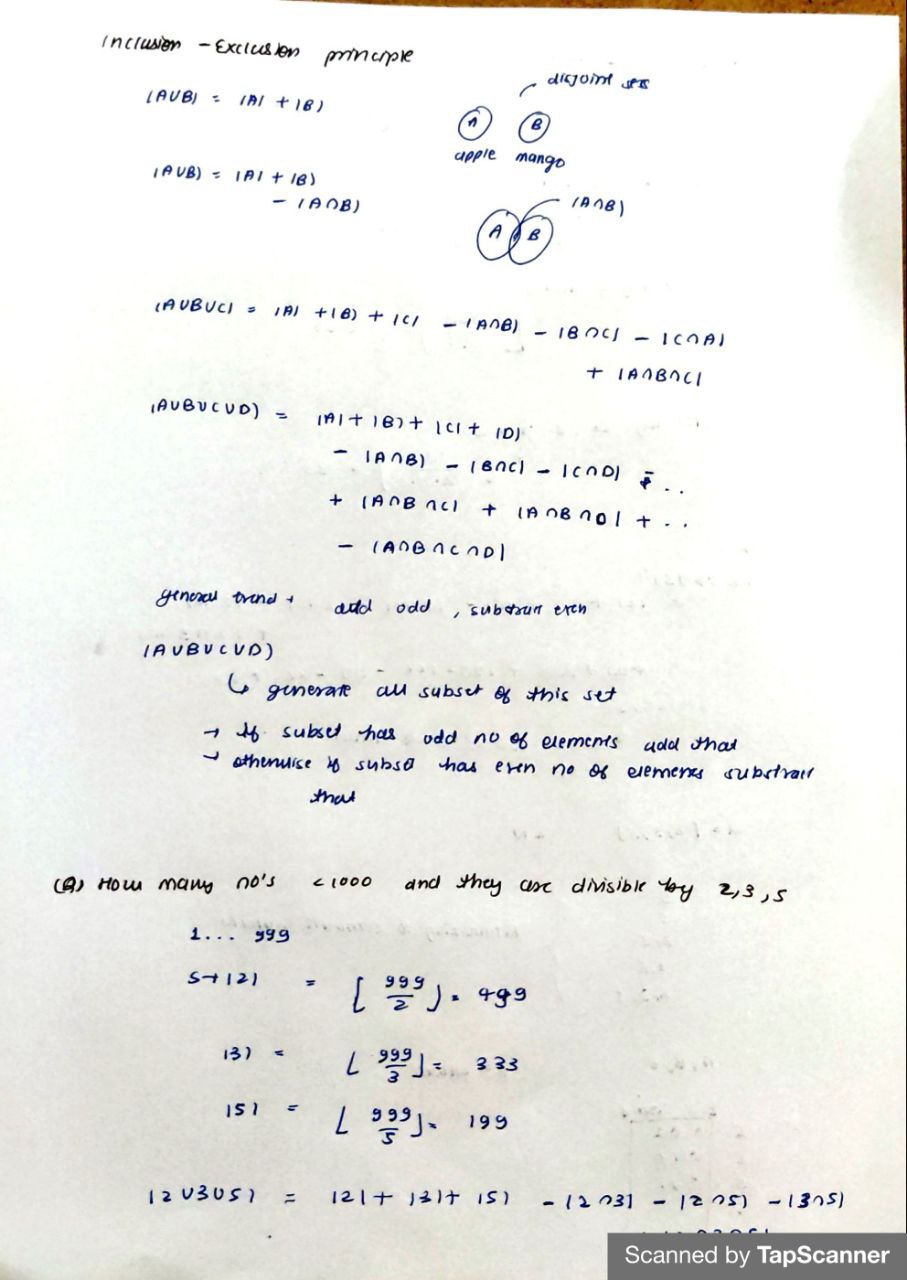 Inclusion - Exclusion principle
|A∪B| = |A| + |B|
disjoint sets
A B
apple mango
|A∪B| = |A| + |B|
- |A∩B|
|A∩B|
A B
|A∪B∪C| = |A| + |B| + |C| - |A∩B| - |B∩C| - |C∩A|
+ |A∩B∩C|
|A∪B∪C∪D| = |A| + |B| + |C| + |D|
- |A∩B| - |B∩C| - |C∩D| - ..
+ |A∩B∩C| + |A∩B∩D| + ..
- |A∩B∩C∩D|
general trend → add odd , substract even
|A∪B∪C∪D|
↳ generate all subset of this set
→ if subset has odd no of elements add that
→ otherwise if subset has even no of elements substract
that
(Q) How many no's < 1000 and they are divisible by 2,3,5
1... 999
S→ |2| = ⌊999/2⌋ = 499
|3| = ⌊999/3⌋ = 333
|5| = ⌊999/5⌋ = 199
|2∪3∪5| = |2| + |3| + |5| - |2∩3| - |2∩5| - |3∩5|
Scanned by TapScanner